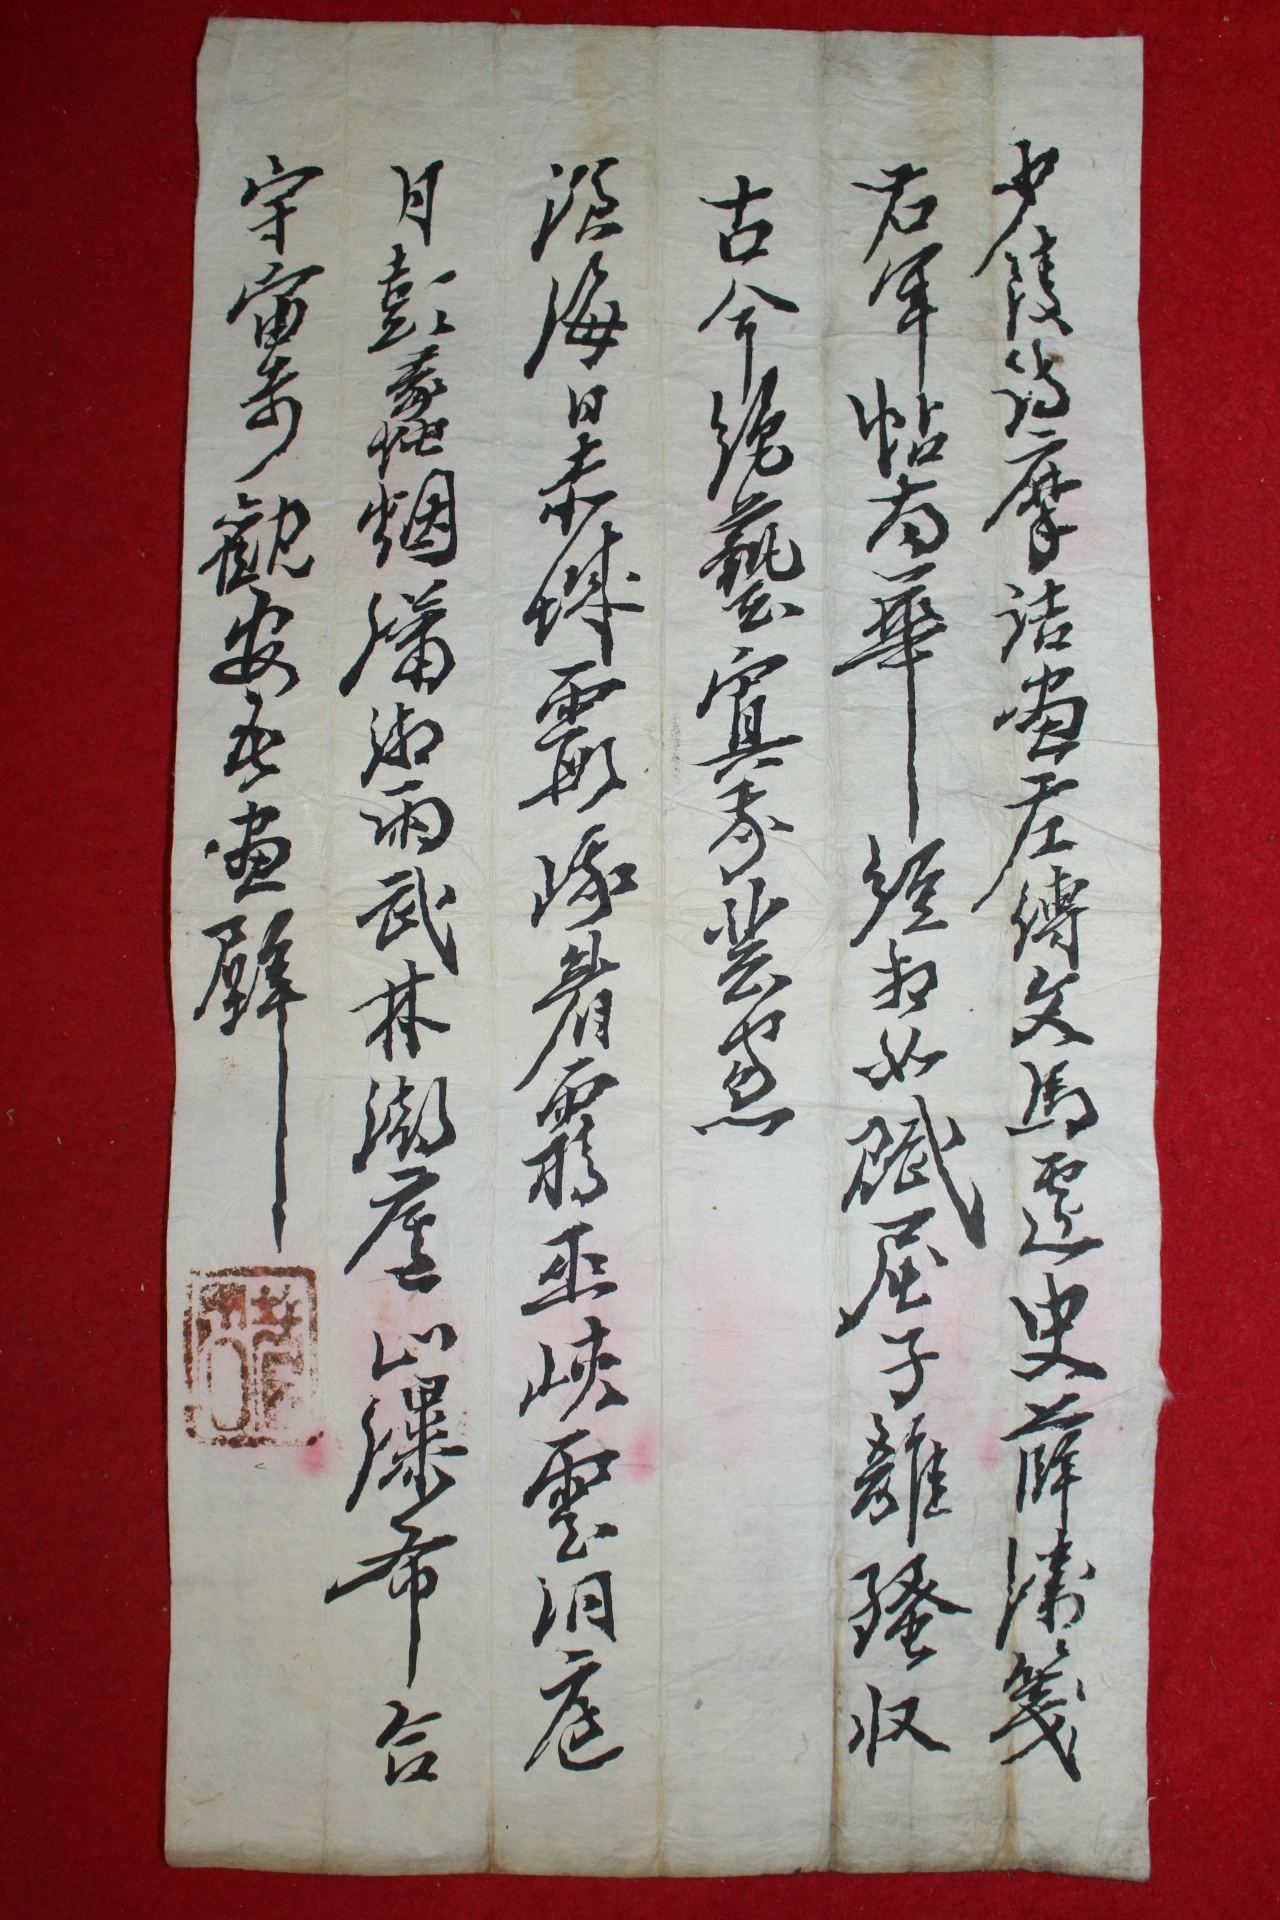 少陵詩摩詰畫左傳文馬遷史薛濤箋
右軍帖南華經相如賦屈子離騷収
古今絶藝寘我芸窓
滄海日赤城霞峨眉巫峽雲洞庭
月彭蠡烟瀟湘雨武林潮廬山瀑布合
宇宙奇觀安吾畫壁